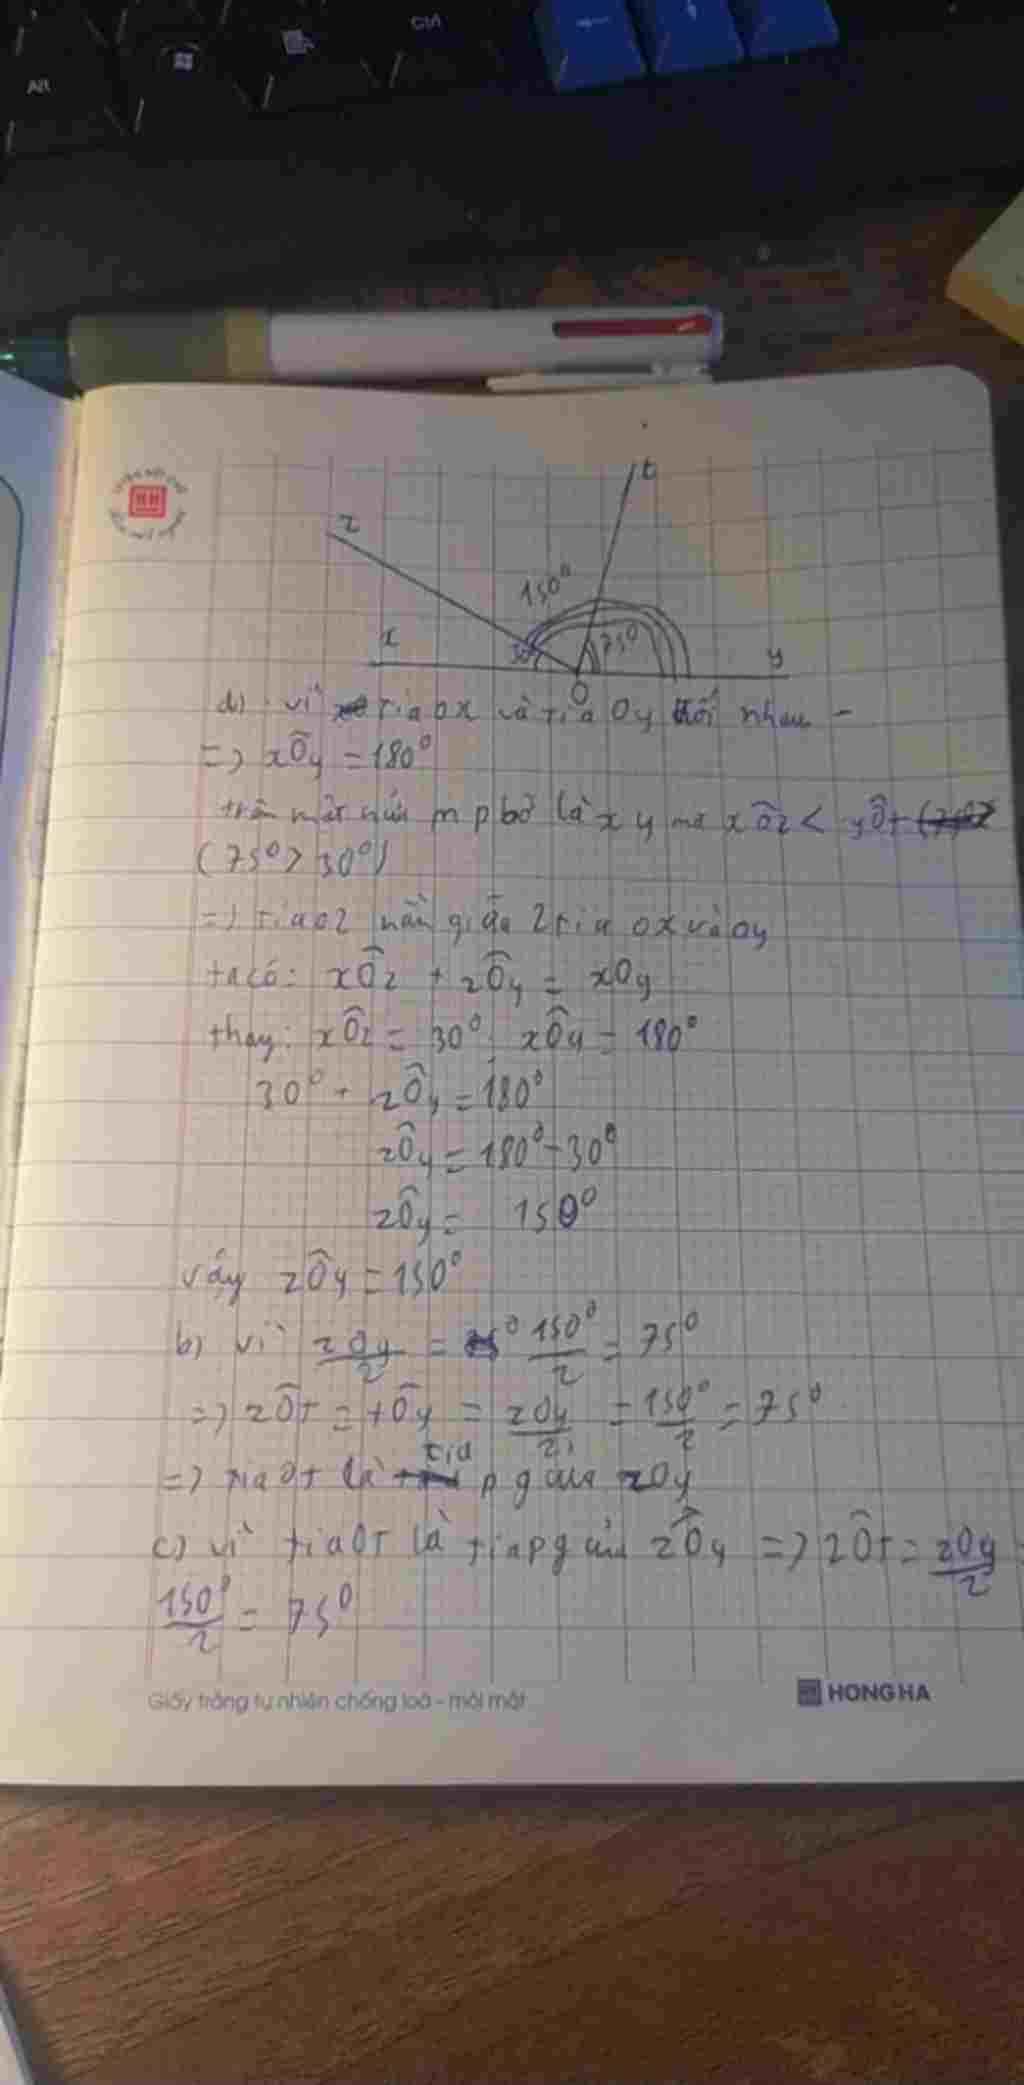 Alt
Ctrl
HH
z
t
150°
x
30°
75°
y
O
a) vì tia Ox và tia Oy đối nhau
=> xÔy = 180°
trên một nửa mp bờ là xy mà xÔz < yÔt
(75° > 30°)
=> tia Oz nằm giữa 2 tia Ox và Oy
ta có: xÔz + zÔy = xOy
thay: xÔz = 30°; xÔy = 180°
30° + zÔy = 180°
zÔy = 180° - 30°
zÔy = 150°
vậy zÔy = 150°
b) vì zOy/2 = 150°/2 = 75°
=> zÔt = tÔy = zOy/2 = 150°/2 = 75°
=> tia Ot là tia pg của zOy
c) vì tia Ot là tia pg của zÔy => zÔt = zOy/2 =
150°/2 = 75°
Giấy trắng tự nhiên chống loá - mỏi mắt
HONG HA